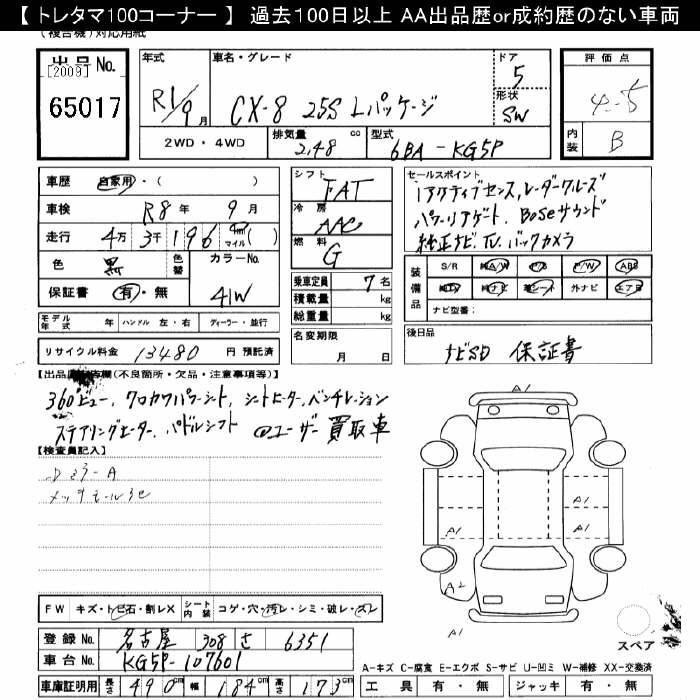 【 トレタマ100コーナー 】 過去100日以上 AA出品歴or成約歴のない車両
(複合機)対応用紙
出品 No.
[2009]
65017
年式
R1/9月
車名・グレード
CX-8 25S Lパッケージ
ドア
5
形状
SW
2WD ・ 4WD
排気量
2,48 cc
型式
6BA - KG5P
評価点
4.5
内装
B
車歴 自家用・( )
車検 R8年 9月
走行 4万3千196 km マイル( )
色 黒
色替
カラーNo.
41W
保証書 有・無
シフト
FAT
冷房
AAC
燃料
G
乗車定員 7名
積載量 kg
総重量 kg
セールスポイント
iアクティブセンス,レーダークルーズ
パワーリアゲート、Boseサウンド
純正ナビ TV.バックカメラ
装備品
S/R 純A/W P/S P/W ABS
純ナビ 革シート 外ナビ エアB
ナビ型番:
モデル年式 年 ハンドル 左・右 ディーラー・並行
リサイクル料金 13480 円 預託済
名変期限
月 日
後日品
ナビSD 保証書
【出品店申告欄(不良箇所・欠品・注意事項等)】
360°ビュー、クロカワパワーシート、シートヒーター,ベンチレーション
ステアリングヒーター、パドルシフト @ユーザー買取車
【検査員記入】
Dミラ-A
メッキモール
A1
A1
A1
A1
A1
A2
A1
スペア
FW キズ・トビ石・割レX シート内装 コゲ・穴・汚レ・シミ・破レ・スレ
登録 No. 名古屋 308 さ 6351
車台 No. KG5P-107601
車庫証明用 長さ 490cm 幅 184cm 高さ 173cm
A-キズ C-腐食 E-エクボ S-サビ U-凹ミ W-補修 XX-交換済
工具 有・無 ジャッキ 有・無